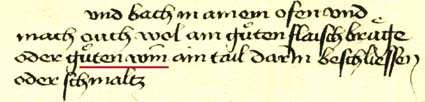 vnd bach in ainem ofen vnd
mach ouch wol ain gůten flaisch brůge
oder gůten win ain tail darin beschliessen
oder schmaltz